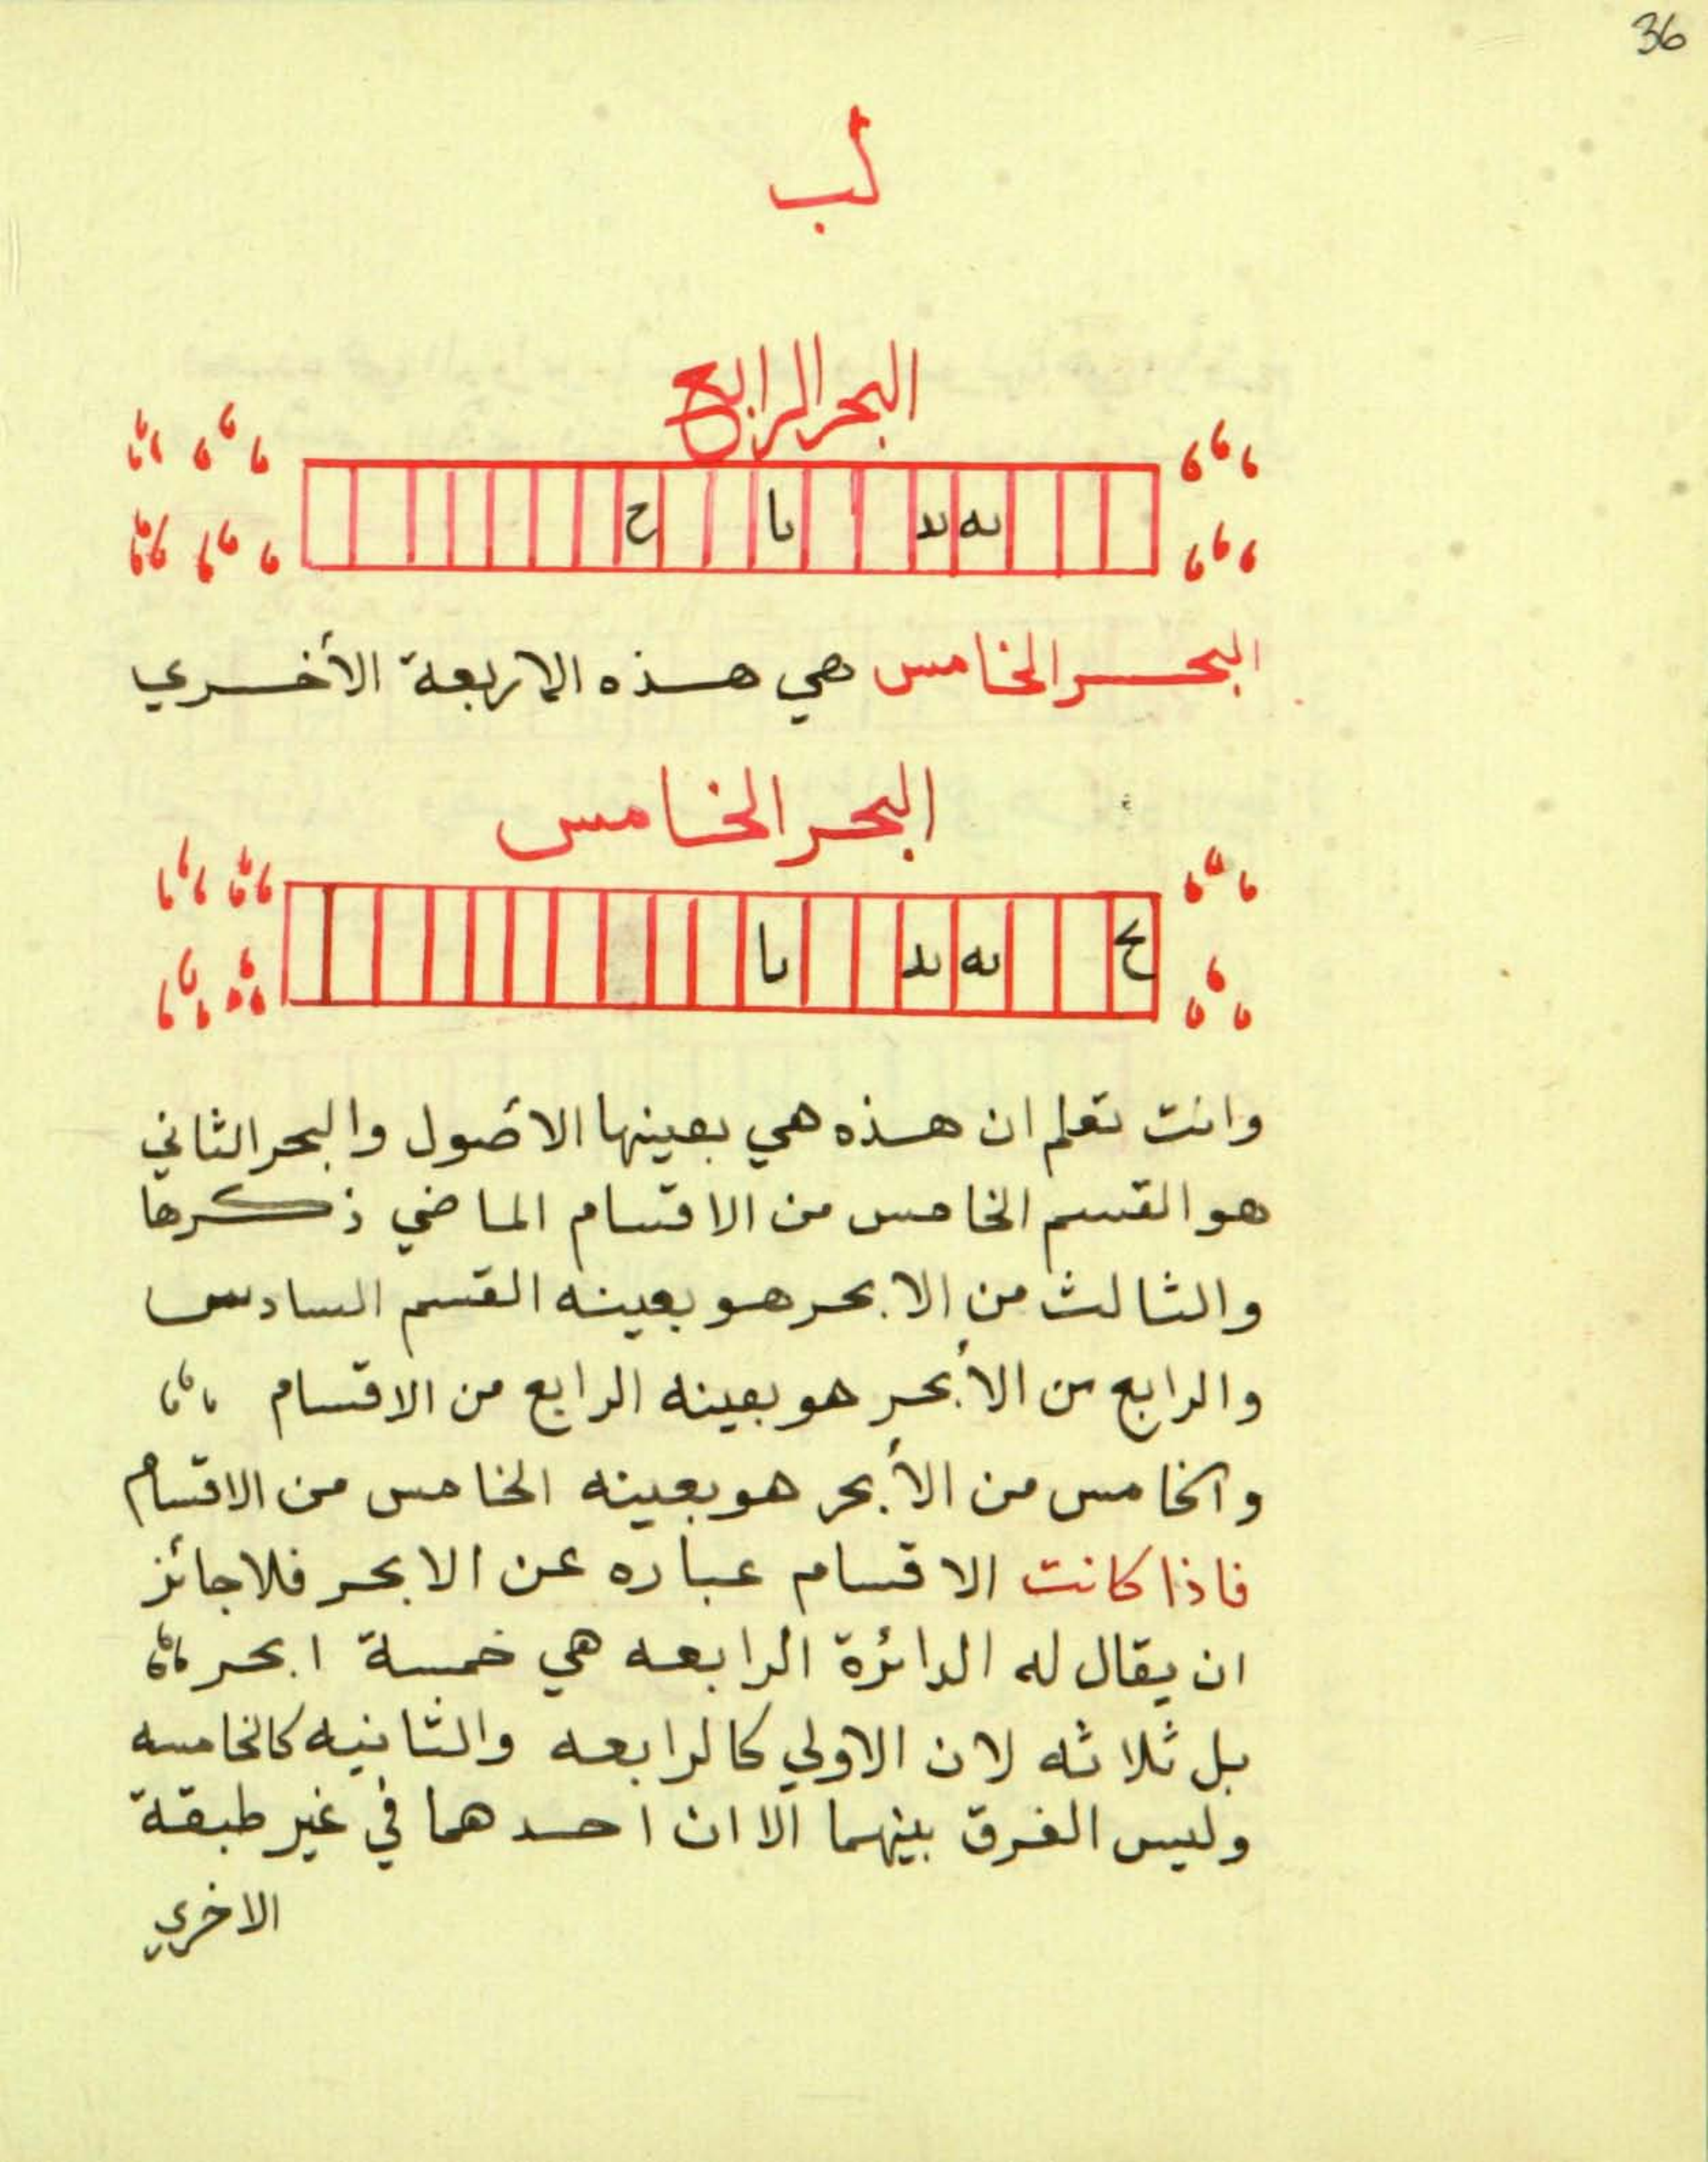 36
لب
البحر الرابع
يه يد يا ح
البحر الخامس هي هذه الاربعة الأخري
البحر الخامس
ح يه يد يا
وانت تعلم ان هذه هي بعينها الاصول والبحر الثاني
هو القسم الخامس من الاقسام الماضي ذكرها
والثالث من الابحر هو بعينه القسم السادس
والرابع من الأبحر هو بعينه الرابع من الاقسام
والخامس من الأبحر هو بعينه الخامس من الاقسام
فاذا كانت الاقسام عباره عن الابحر فلا جائز
ان يقال له الدائرة الرابعه هي خمسة ابحر
بل ثلاثه لان الاولي كالرابعه والثانيه كالخامسه
وليس الفرق بينهما الا ان احدهما في غير طبقة
الاخري